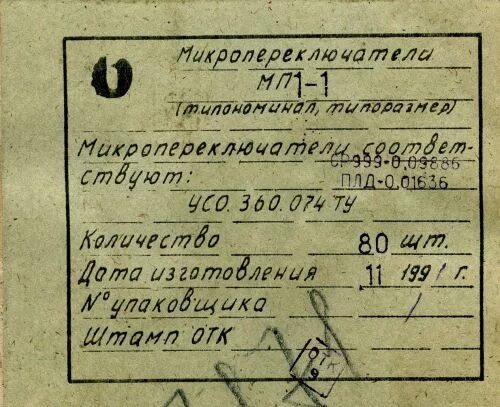 Микропереключатели
МП1-1
(типономинал, типоразмер)
Микропереключатели соответ-
ствуют:
СР999-0,09886
ПЛД-0,01636
УСО.360.074 ТУ
Количество 80 шт.
Дата изготовления 11 1991 г.
№ упаковщика
Штамп ОТК
ОТК
9